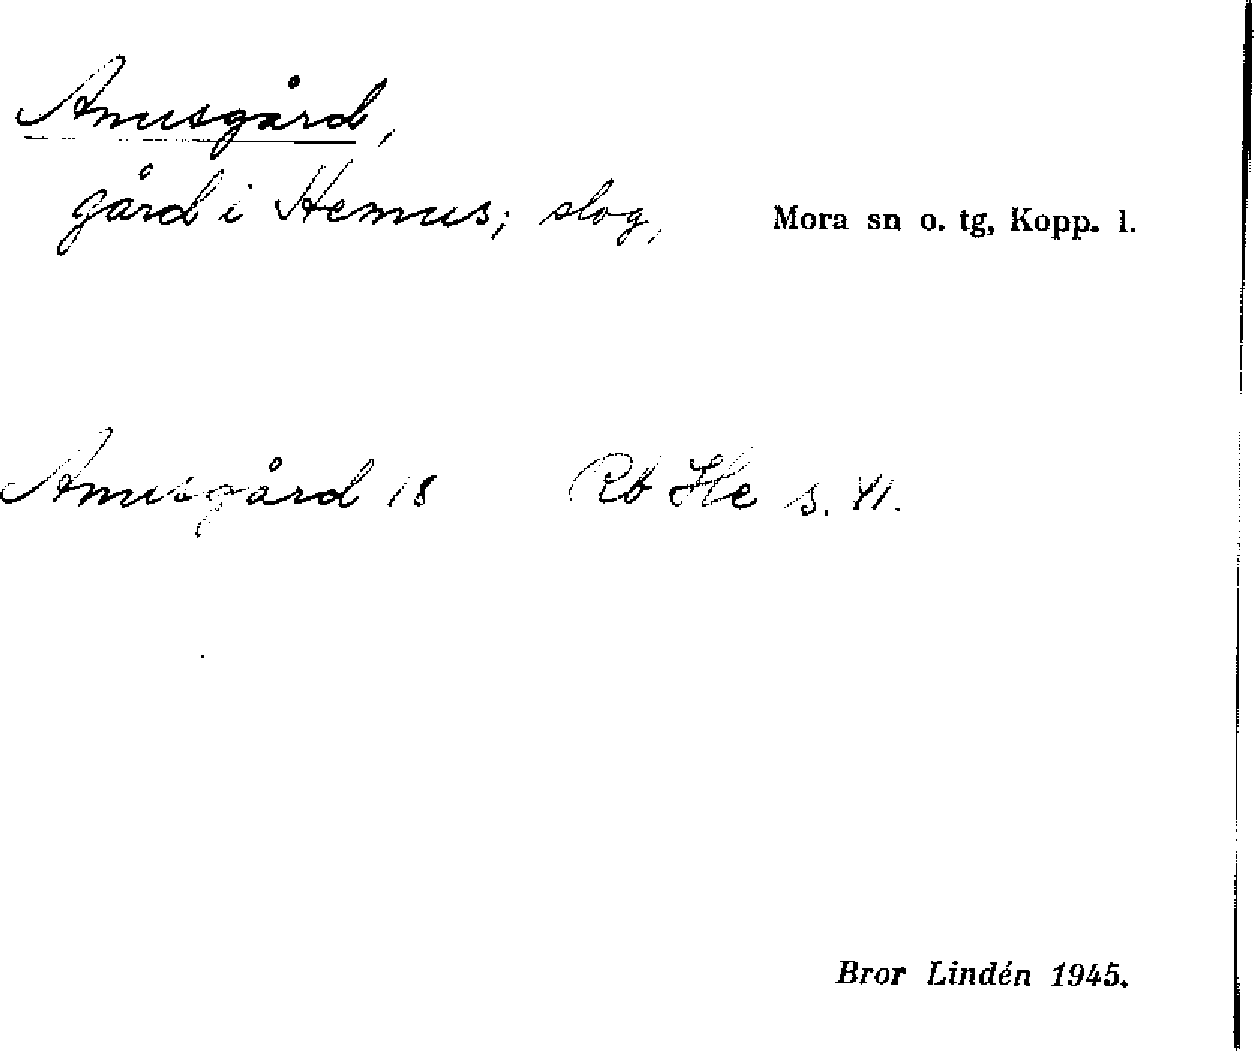 Anusgård,
gård i Hemus; slog, Mora sn o. tg, Kopp. l.
Anusgård 18 Rb He s. 41.
Bror Lindén 1945.